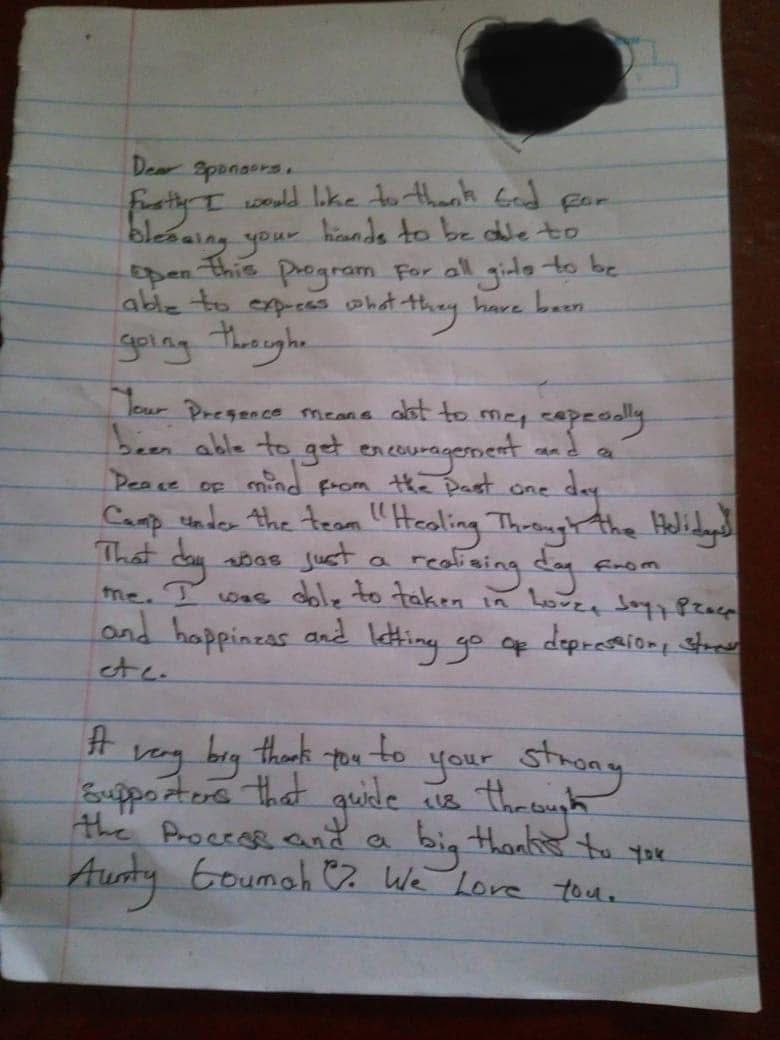 Dear Sponsors.
Firstly I would like to thank God for
blessing your hands to be able to
open this program for all girls to be
able to express what they have been
going through.
Your Presence means alot to me, especially
been able to get encouragement and a
Peace of mind from the Past one day
Camp under the team "Healing Through the Holidays"
That day was just a realising day from
me. I was able to taken in Love, Joy, Peace
and happiness and letting go of depression, stress
etc.
A very big thank you to your strong
supporters that guide us through
the Process and a big thanks to you
Aunty Goumah ♡. We Love You.